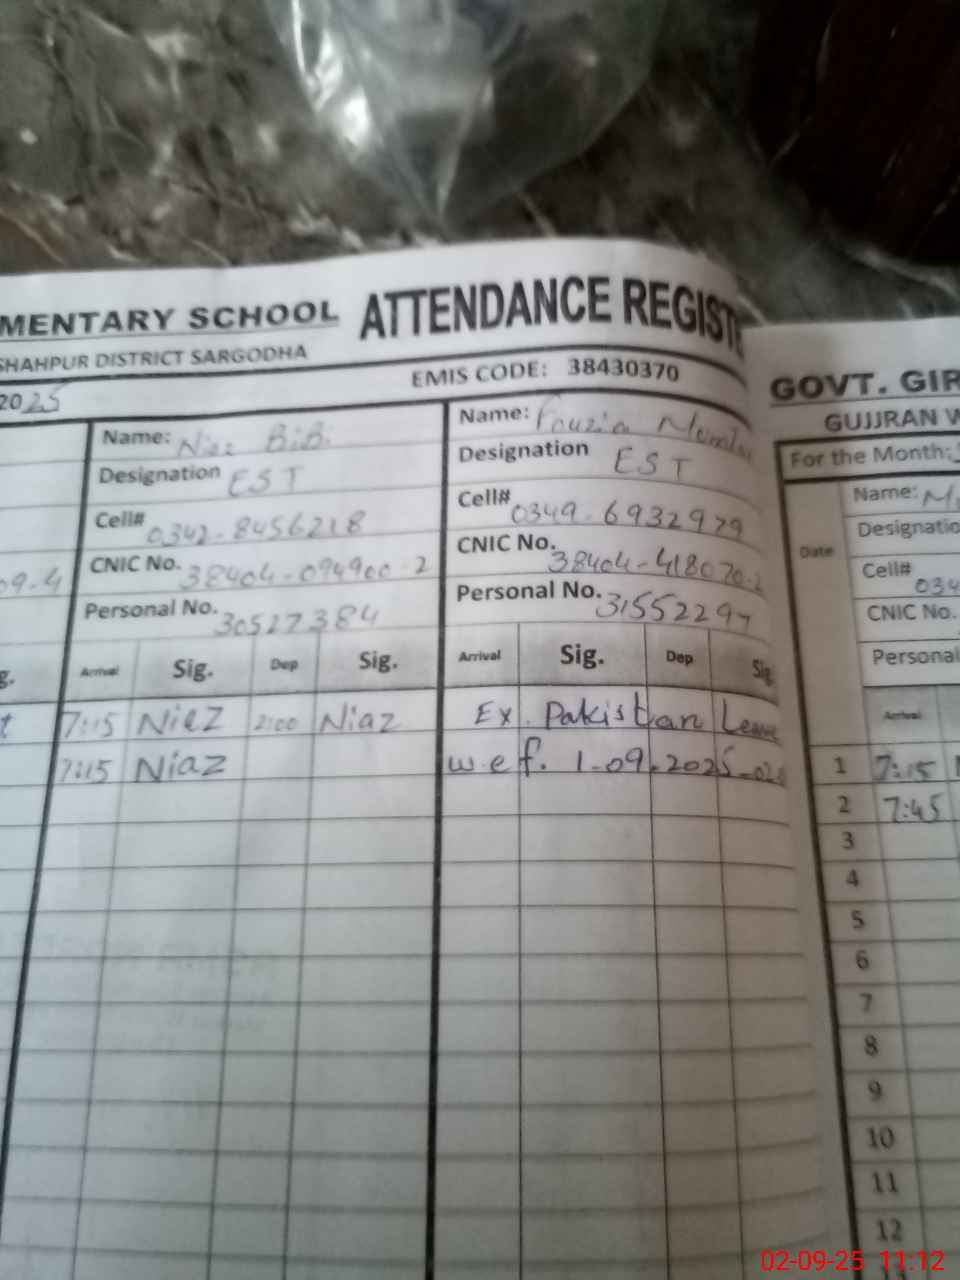 MENTARY SCHOOL ATTENDANCE REGISTE
SHAHPUR DISTRICT SARGODHA
EMIS CODE: 38430370
2025
Name: Niaz BiBi
Designation EST
Cell# 0342-8456218
CNIC No. 38404-094900-2
Personal No. 30527384
Arrival Sig. Dep Sig.
7:15 Niaz 2:00 Niaz
7:15 Niaz
Name: Fouzia
Designation EST
Cell# 0349-6932979
CNIC No. 38404-418070-2
Personal No. 31552297
Arrival Sig. Dep Sig
Ex. Pakistan Leave
w.e.f. 1-09.2025-02
09-4
g.
t
GOVT. GIR
GUJJRAN W
For the Month:
Date
Name: M
Designatio
Cell# 034
CNIC No.
Personal
Arrival
1 7:15
2 7:45
3
4
5
6
7
8
9
10
11
12
02-09-25 11:12